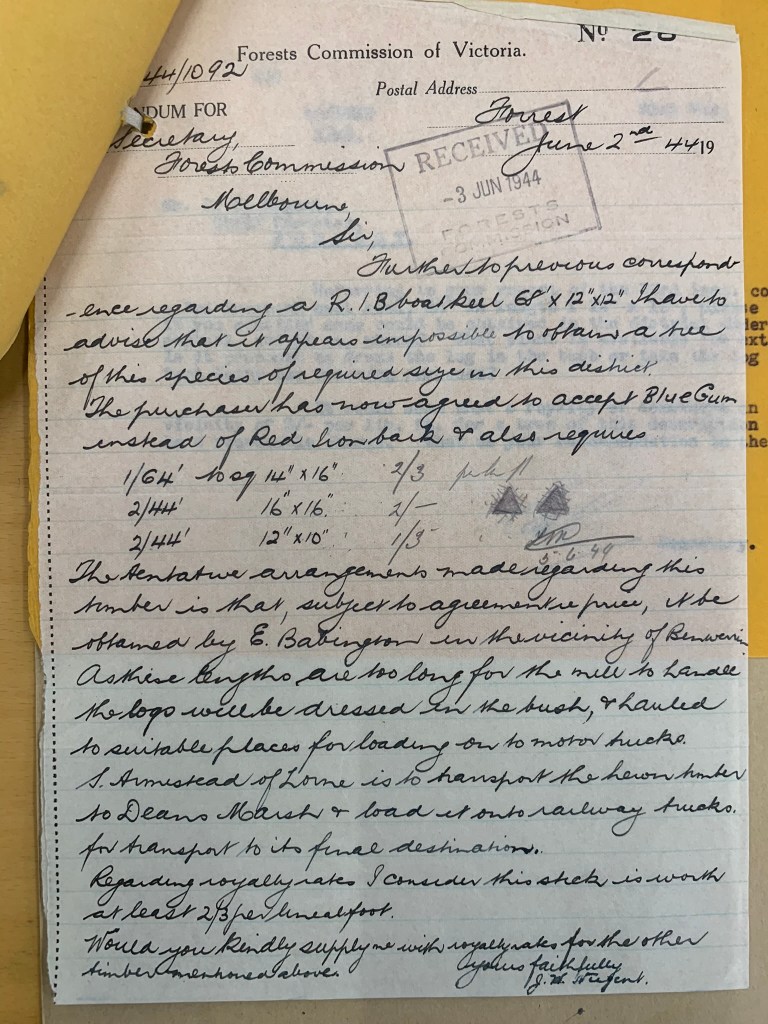 No 20
Forests Commission of Victoria.
44/1092
Postal Address
NDUM FOR
Forrest
Secretary,
June 2nd 4419
Forests Commission
RECEIVED
-3 JUN 1944
FORESTS
COMMISSION
Melbourne,
Sir,
Further to previous correspond
-ence regarding a R.I.B boat keel 68' x 12" x 12" I have to
advise that it appears impossible to obtain a tree
of this species of required size in this district.
The purchaser has now agreed to accept Blue Gum
instead of Red Ironbark & also requires
1/64' to sq 14" x 16" 2/3
2/44' 16" x 16" 2/-
2/44' 12" x 10" 1/3
The tentative arrangements made regarding this
timber is that, subject to agreement re price, it be
obtained by E. Babington in the vicinity of Benwerrin
As these lengths are too long for the mill to handle
the logs will be dressed in the bush, & hauled
to suitable places for loading on to motor trucks.
S. Armistead of Lorne is to transport the hewn timber
to Deans Marsh & load it onto railway trucks.
for transport to its final destination.
Regarding royalty rates I consider this stick is worth
at least 2/3 per lineal foot.
Would you kindly supply me with royalty rates for the other
timber mentioned above.
Yours faithfully
J. W. Nugent.